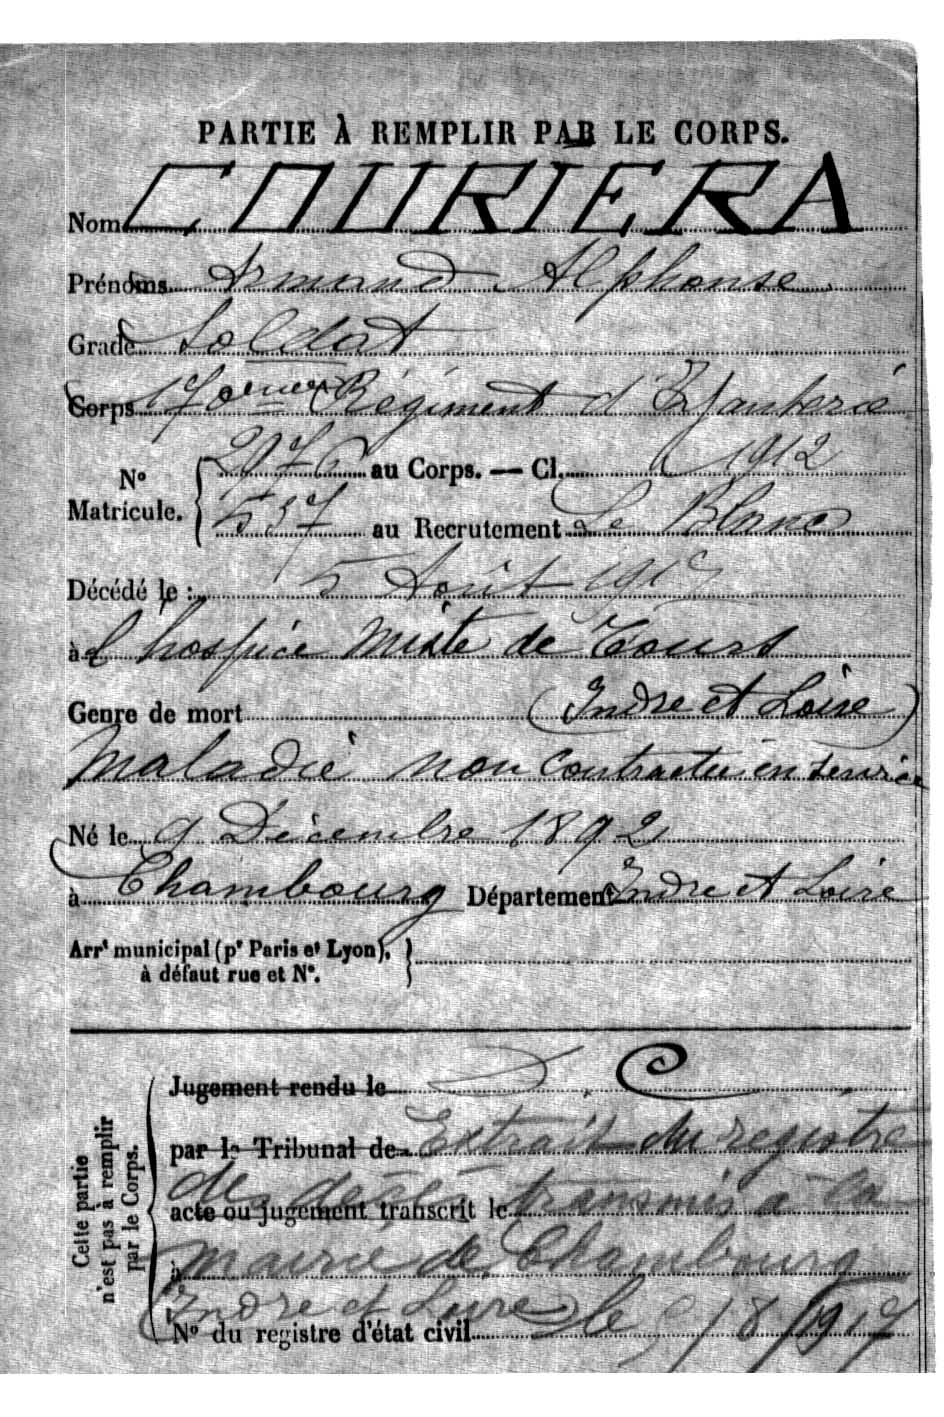 PARTIE À REMPLIR PAR LE CORPS.
Nom COURIERA
Prénoms Armand Alphonse
Grade Soldat
Corps 170eme Régiment d'Infanterie
N° Matricule. 2976 au Corps. — Cl. 1912
537 au Recrutement Le Blanc
Décédé le : 5 Août 1917
à l'hospice Mixte de Tours
Genre de mort (Indre et Loire)
Maladie non contractée en service
Né le 9 Décembre 1892
à Chambourg Département Indre et Loire
Arrt municipal (pr Paris et Lyon),
à défaut rue et N°.
Cette partie n'est pas à remplir par le Corps.
Jugement rendu le D. C
par le Tribunal de Extrait du registre
des décès transmis à la
acte ou jugement transcrit le
à mairie de Chambourg
Indre et Loire le 5/8/1917
N° du registre d'état civil